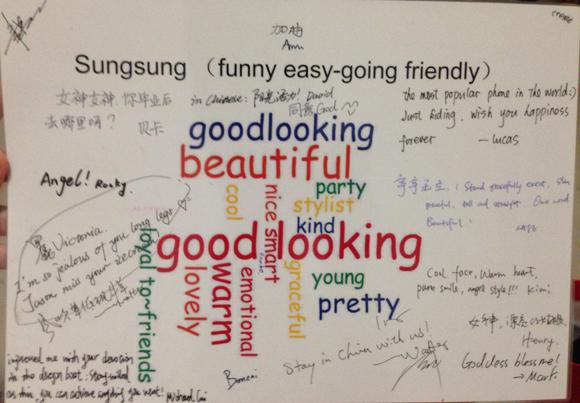 加油
Ann
Sungsung （funny easy-going friendly）
女神女神，你毕业后
去哪里啊？
贝卡
in Chinese: 阳光活力! David
同意God
the most popular phone in the world:)
Just kidding. wish you happiness
forever
— lucas
goodlooking
beautiful
party
cool
nice
stylist
kind
smart
good looking
loyal to~friends
lovely
warm
emotional
graceful
young
pretty
Angel! Rocky.
Victoria.
I'm so jealous of you long legs
Jason miss your
亭亭玉立. : Stand gracefully erect, slim
graceful, tall and straight. One word
Beautiful.
Cool face, Warm heart,
pure smile, angel style!!! Kimi
女神,
Henry.
Goddess bless me!
→ Mark.
Stay in China with us!
impressed me with your devotion
in the dragon boat. Strong-willed
as thin, you can achieve anything you want!
Michael Cui